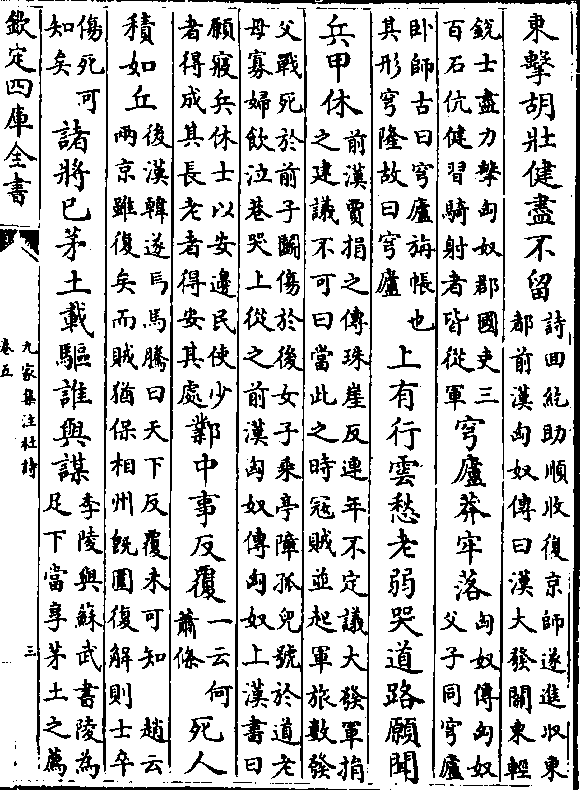 東擊胡壯健盡不留
詩回紇助順收復京師遂進収東
都前漢匈奴傳曰漢大發關東輕
銳士盡力擊匈奴郡國吏三
百石伉健習騎射者皆從軍
穹廬莽牢落
匈奴傳匈奴
父子同穹廬
卧師古曰穹廬旃帳也
其形穹隆故曰穹廬
上有行雲愁老弱哭道路願聞
兵甲休
前漢賈捐之傳珠崖反連年不定議大發軍捐
之建議不可曰當此之時冦賊並起軍旅數發
父戰死於前子鬭傷於後女子乗亭障孤兒號於道老
母寡婦飲泣巷哭上從之前漢匈奴傳匈奴上漢書曰
願寢兵休士以安邊民使少
者得成其長老者得安其處
鄴中事反覆
一云何
蕭條
死人
積如丘
後漢韓遂與馬騰曰天下反覆未可知 趙云
兩京雖復矣而賊猶保相州既圍復解則士卒
傷死可
知矣
諸將已茅土載驅誰與謀
李陵與蘇武書陵為
足下當享茅土之薦
欽定四庫全書
九家集注杜詩
卷五
三